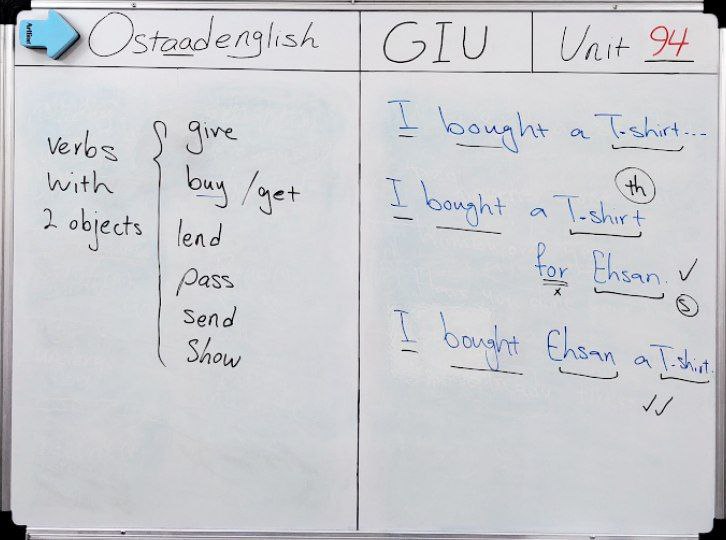 Ostaadenglish
GIU
Unit 94
verbs
with
2 objects
give
buy / get
lend
pass
send
Show
I bought a T-shirt...
I bought a T-shirt
th
for Ehsan. ✓
x
s
I bought Ehsan a T-shirt.
✓✓